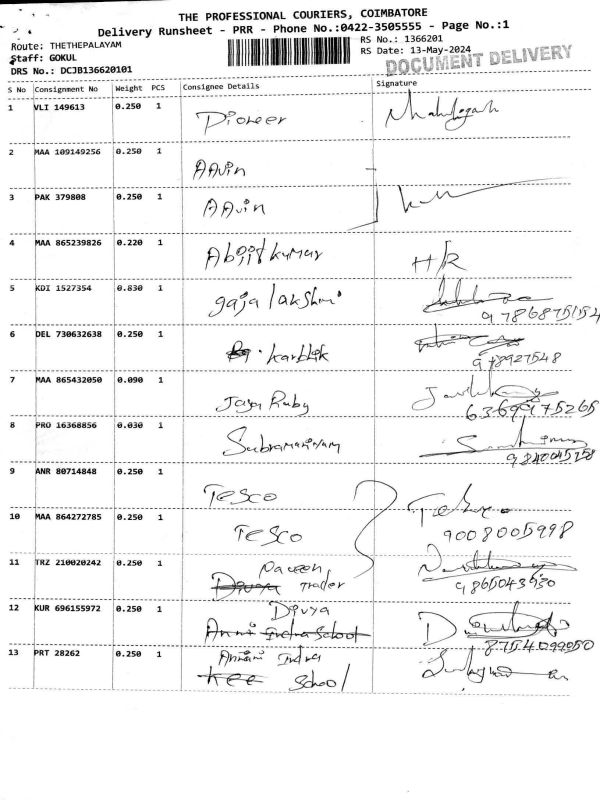 THE PROFESSIONAL COURIERS, COIMBATORE
Delivery Runsheet - PRR - Phone No.:0422-3505555 - Page No.:1
Route: THETHEPALAYAM
RS No.: 1366201
Staff: GOKUL
RS Date: 13-May-2024
DOCUMENT DELIVERY
DRS No.: DCJB136620101
S No Consignment No Weight PCS Consignee Details Signature
1 VLI 149613 0.250 1 Pioneer
2 MAA 109149256 0.250 1 AAvin
3 PAK 379808 0.250 1 AAvin
4 MAA 865239826 0.220 1 Abijitkumar H/R
5 KDI 1527354 0.830 1 gaja lakshmi
9786875154
6 DEL 730632638 0.250 1 karthik
978927548
7 MAA 865432050 0.090 1 Jaya Ruby
6369975265
8 PRO 16368856 0.030 1 Subramaniyam
9840045258
9 ANR 80714848 0.250 1 TESCO
10 MAA 864272785 0.250 1 TESCO
9008005998
11 TRZ 210020242 0.250 1 Naveen
Divya Trader
9865043930
12 KUR 696155972 0.250 1 Divya
Annai Indra School
8754099050
13 PRT 28262 0.250 1 Annai Indra
Kee School